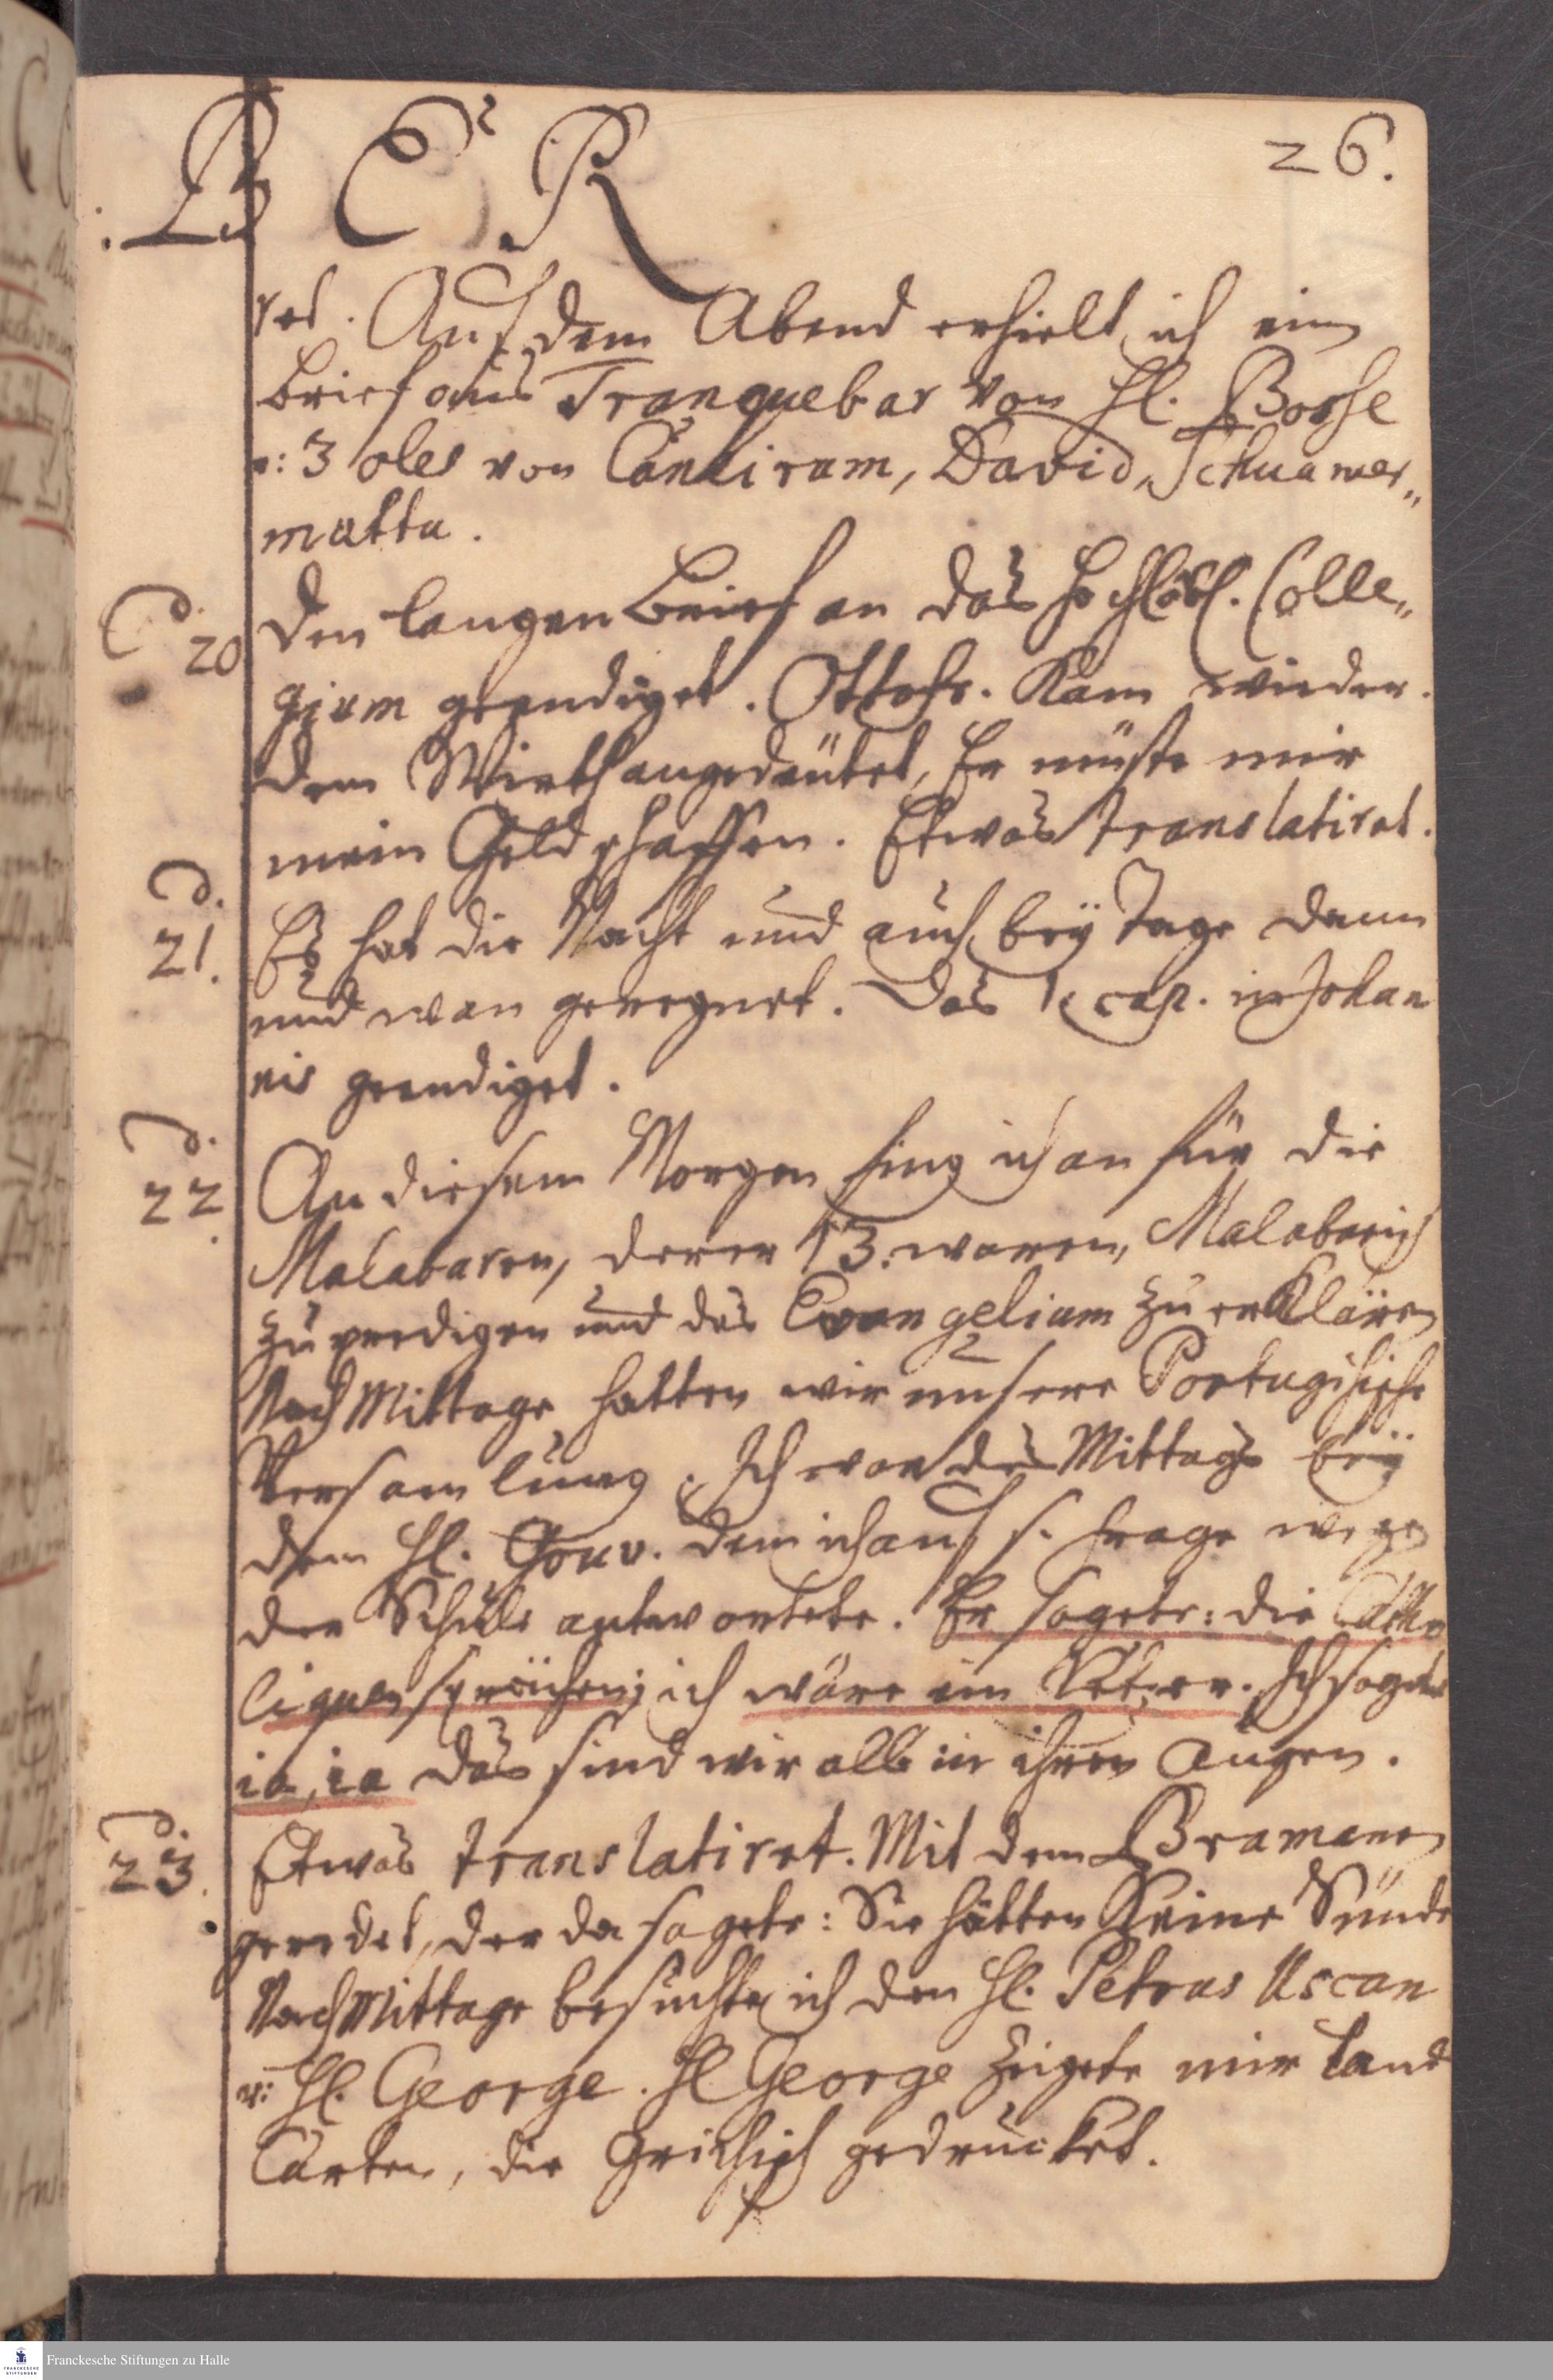 BER
26.
ret. Auf dem Abend erhielt ich ein
brief aus Tranquebar von H. Bosse
u: 3 oles von Candiram, David, Schuawer„
matta.
d. 20 Den langen brief an das Hochlöbl. Colle„
gium geendiget. Ottofr. Kam wieder.
dem Wirth angedeutet, Er müste mir
mein Geld schaffen. Etwas translatiret.
d. 21. Es hat die Nacht und auch bey Tage dann
und wan geregnet. Das 1 cap. in Johan
nis geendiget.
d. 22. An diesem Morgen fing ich an für die
Malabaren, derer 13. waren, Malabarisch
zu predigen und das Evangelium zu erklären
Nach Mittage hatten wir unsere Portugisische
Versamlung. Ich war des Mittags bey
dem H. Gouv. dem ich auf s. frage wegen
der Schule antwortete. Er sagete: die Catho
liquen sprächen, ich wäre ein Ketzer. Ich sagete
ia, ia das sind wir alle in ihren Augen.
d. 23. Etwas translatiret. Mit dem Bramanen
geredet, der da sagete: Sie hätten Keine Sünde
Nach Mittage besuchte ich den H. Petrus Uscan
u: H. George. H George zeigete mir Land
Carten, die Grichisch gedrucket.
Franckesche Stiftungen zu Halle